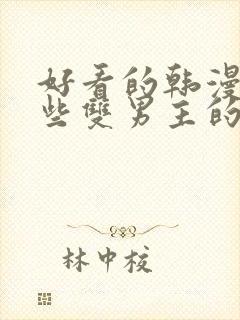 好看的韩漫
些雙男主的
林中校